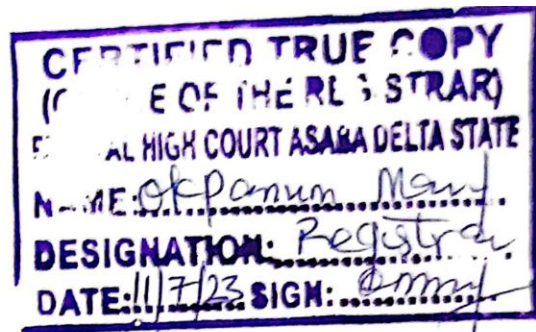 CERTIFIED TRUE COPY
E OF THE REGISTRAR)
AL HIGH COURT ASABA DELTA STATE
NAME: Okpanum Mary
DESIGNATION: Registrar
DATE: 11/7/23 SIGN: